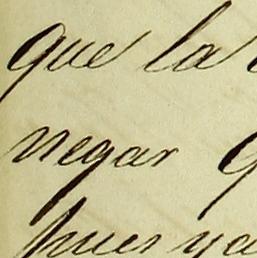 que la
negar
pues ya